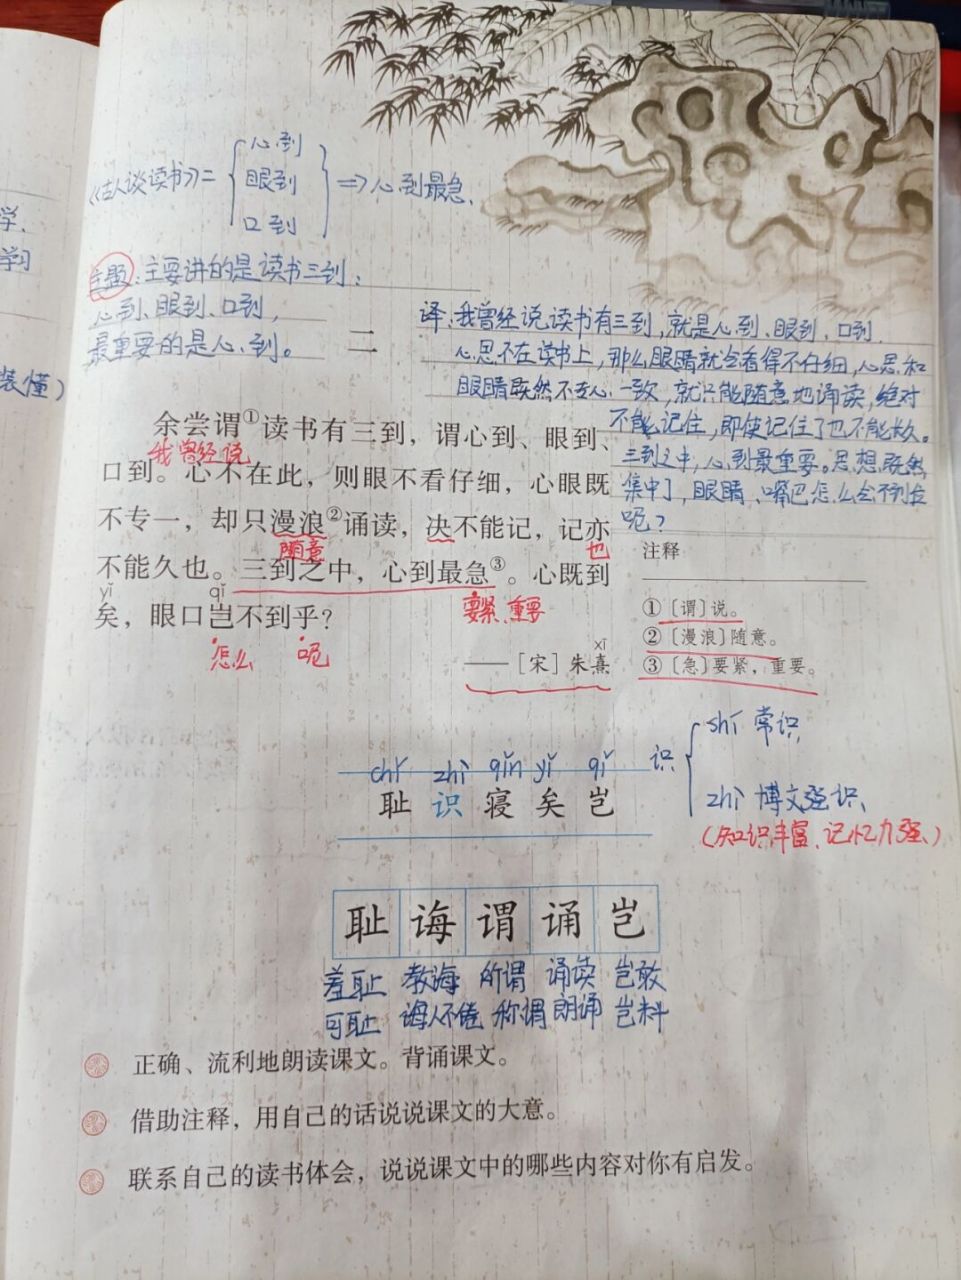 学、
学习
装懂）
《古人谈读书》=
心到
眼到
口到
=>心到最急、
主题：主要讲的是读书三到：
心到、眼到、口到，
最重要的是心到。
二
译：我曾经说读书有三到，就是心到、眼到、口到.
心思不在读书上，那么眼睛就会看得不仔细，心思和
眼睛既然不专心一致，就只能随意地诵读，绝对
不能记住，即使记住了也不能长久。
三到之中，心到最重要。思想既然
集中了，眼睛、嘴巴怎么会不到位
呢？
余尝谓①读书有三到，谓心到、眼到、
我曾经说
口到。心不在此，则眼不看仔细，心眼既
不专一，却只漫浪②诵读，决不能记，记亦
随意 也
不能久也。三到之中，心到最急③。心既到
yǐ qǐ 要紧、重要
矣，眼口岂不到乎？
怎么 呢
xī
——［宋］朱熹
注释
①〔谓〕说。
②〔漫浪〕随意。
③〔急〕要紧，重要。
chǐ zhì qǐn yǐ qǐ
耻 识 寝 矣 岂
识
shí 常识
zhì 博文强识
（知识丰富、记忆力强、）
耻 诲 谓 诵 岂
羞耻 教诲 所谓 诵读 岂敢
可耻 诲人不倦 称谓 朗诵 岂料
正确、流利地朗读课文。背诵课文。
借助注释，用自己的话说说课文的大意。
联系自己的读书体会，说说课文中的哪些内容对你有启发。